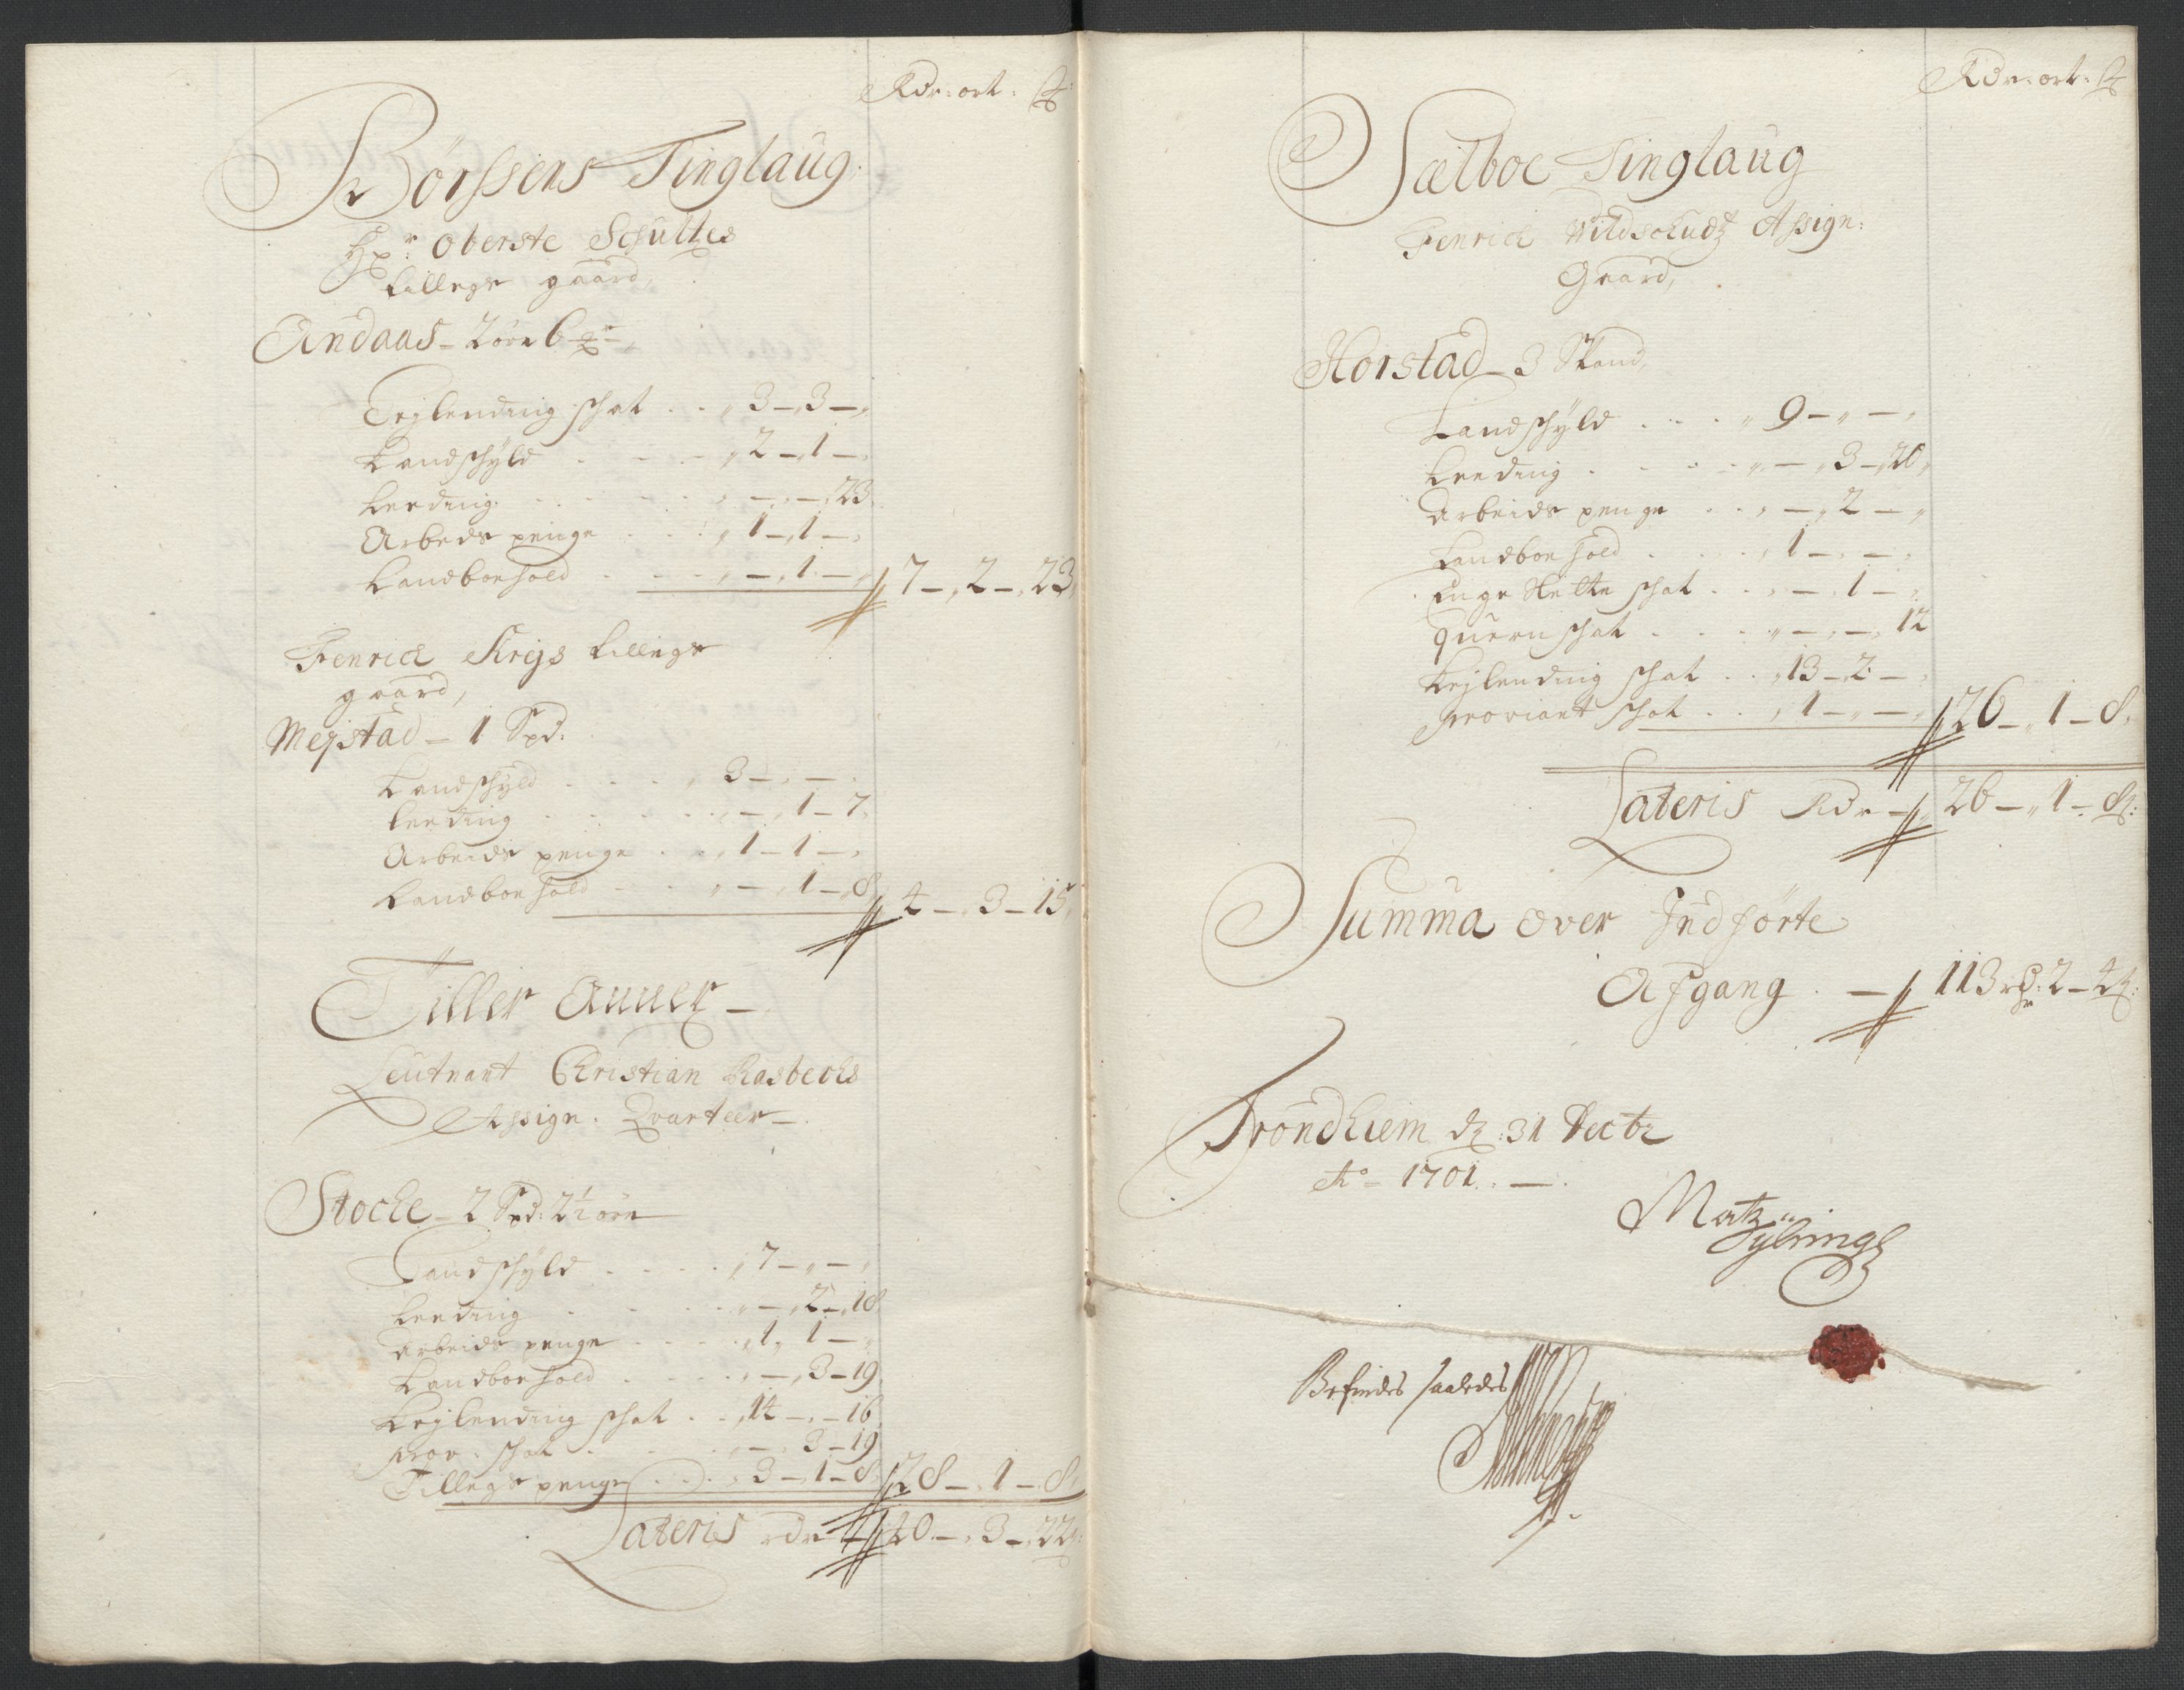 Rdr: ort: ß
Börssens Tinglaug
Hr: Oberste Schultes
tillegs gaard,
Andaas - 2 öre 6
Lejlending schat . . 3 - 3 -
Landschyld . . . 2 - 1 -
Leeding . . . - - 23
Arbeds penge . . 1 - 1 -
Landboehold . . . - 1 - 7 - 2 - 23
Fenrick Krigs tillegs
gaard,
Mejstad - 1 Spd:
Landschyld . . . 3 - -
Leeding . . . - 1 - 7
Arbeids penge . . 1 - 1 -
Landboehold . . - 1 - 8 4 - 3 - 15
Tiller Annex -
Leutnant Christian Rasbechs
Assign. Qvarteer -
Stocke - 2 Spd: 2½ öre
Landschyld . . . 7 - -
Leeding . . . - 2 - 18
Arbeids penge . . . 1 - 1 -
Landboehold . . . - 3 - 19
Lejlending schat . . 14 - - 16
prov: schat . . . - 3 - 19
Tillegs penge . . 3 - 1 - 8 28 - 1 - 8
Lateris rdr 40 - 3 - 22
Rdr: ort: ß
Sælboe Tinglaug
Fenrick Wildschudtz Assign:
Gaard,
Horstad - 3 Spand,
Landschyld . . . 9 - -
Leeding . . . - 3 - 20
Arbeids penge . . - 2 -
Landboehold . . . 1 - -
Enge Slette schat . . - 1 -
Quern schat . . . - - 12
Lejlending schat . . 13 - 2 -
Proviant schat . . 1 - - 26 - 1 - 8
Lateris Rdr - 26 - 1 - 8
Summa over Indförte
Afgang . - 113 rdr: 2 - 4
Trondhiem d: 31 Decbr
Ao - 1701. -
Befindes saaledes